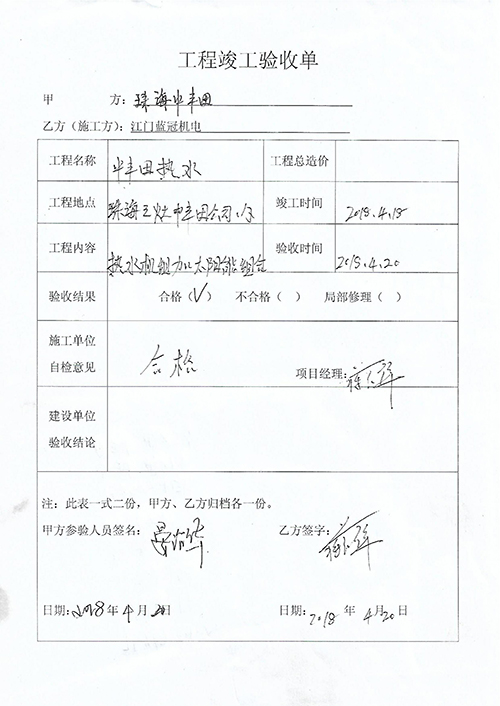 工程竣工验收单
甲 方：珠海中丰田
乙方（施工方）：江门蓝冠机电
工程名称 中丰田热水 工程总造价
工程地点 珠海三灶中丰田公司 竣工时间 2018.4.18
工程内容 热水机组加太阳能组合 验收时间 2018.4.20
验收结果 合格（√） 不合格（ ） 局部修理（ ）
施工单位
自检意见 合格 项目经理：
建设单位
验收结论
注：此表一式二份，甲方、乙方归档各一份。
甲方参验人员签名： 乙方签字：
日期：2018年4月20日 日期：2018年4月20日